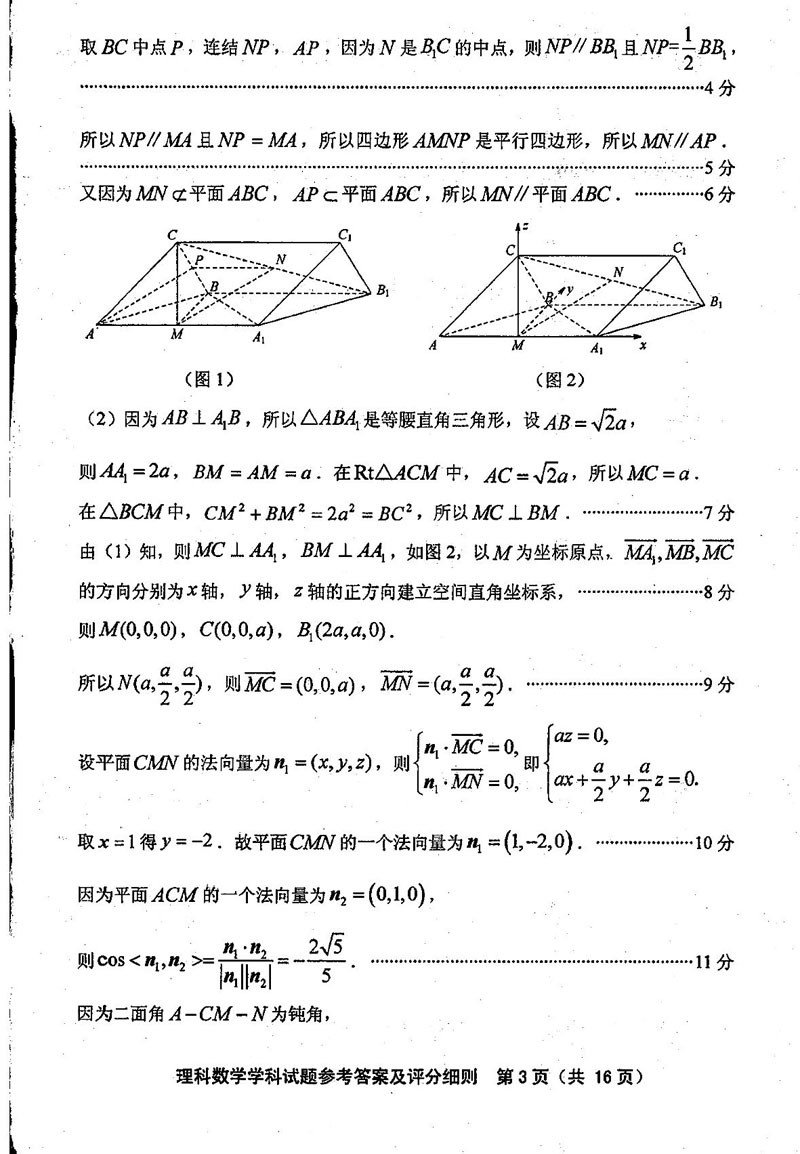 取 BC 中点 P，连结 NP，AP，因为 N 是 B₁C 的中点，则 NP∥BB₁ 且 NP=1/2 BB₁，
……4 分
所以 NP∥MA 且 NP = MA，所以四边形 AMNP 是平行四边形，所以 MN∥AP．
……5 分
又因为 MN⊄平面 ABC，AP⊂平面 ABC，所以 MN∥平面 ABC．……6 分
C C₁ P N B B₁ A M A₁
z C C₁ N B y B₁ A M A₁ x
（图 1） （图 2）
（2）因为 AB⊥A₁B，所以△ABA₁ 是等腰直角三角形，设 AB=√2a，
则 AA₁=2a，BM=AM=a．在Rt△ACM 中，AC=√2a，所以 MC=a．
在△BCM 中，CM²+BM²=2a²=BC²，所以 MC⊥BM．……7 分
由（1）知，则 MC⊥AA₁，BM⊥AA₁，如图 2，以 M 为坐标原点，MA₁,MB,MC
的方向分别为 x 轴，y 轴，z 轴的正方向建立空间直角坐标系，……8 分
则 M(0,0,0)，C(0,0,a)，B₁(2a,a,0)．
所以 N(a,a/2,a/2)，则 MC=(0,0,a)，MN=(a,a/2,a/2)．……9 分
设平面 CMN 的法向量为 n₁=(x,y,z)，则{n₁·MC=0, n₁·MN=0, 即{az=0, ax+a/2 y+a/2 z=0.
取 x=1 得 y=-2．故平面 CMN 的一个法向量为 n₁=(1,-2,0)．……10 分
因为平面 ACM 的一个法向量为 n₂=(0,1,0)，
则 cos<n₁,n₂>= n₁·n₂/|n₁||n₂| = -2√5/5．……11 分
因为二面角 A-CM-N 为钝角，
理科数学学科试题参考答案及评分细则 第 3 页（共 16 页）